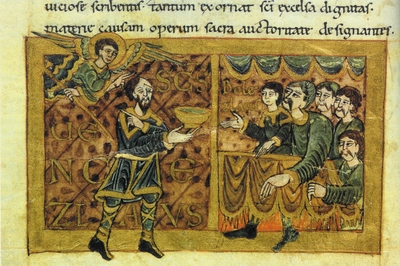 uiciose scribentis tantum exornat scī excelsa dignitas.
materie causam operum sacra auctoritate designantes.
SCS
UE
NCE
ZLAVS